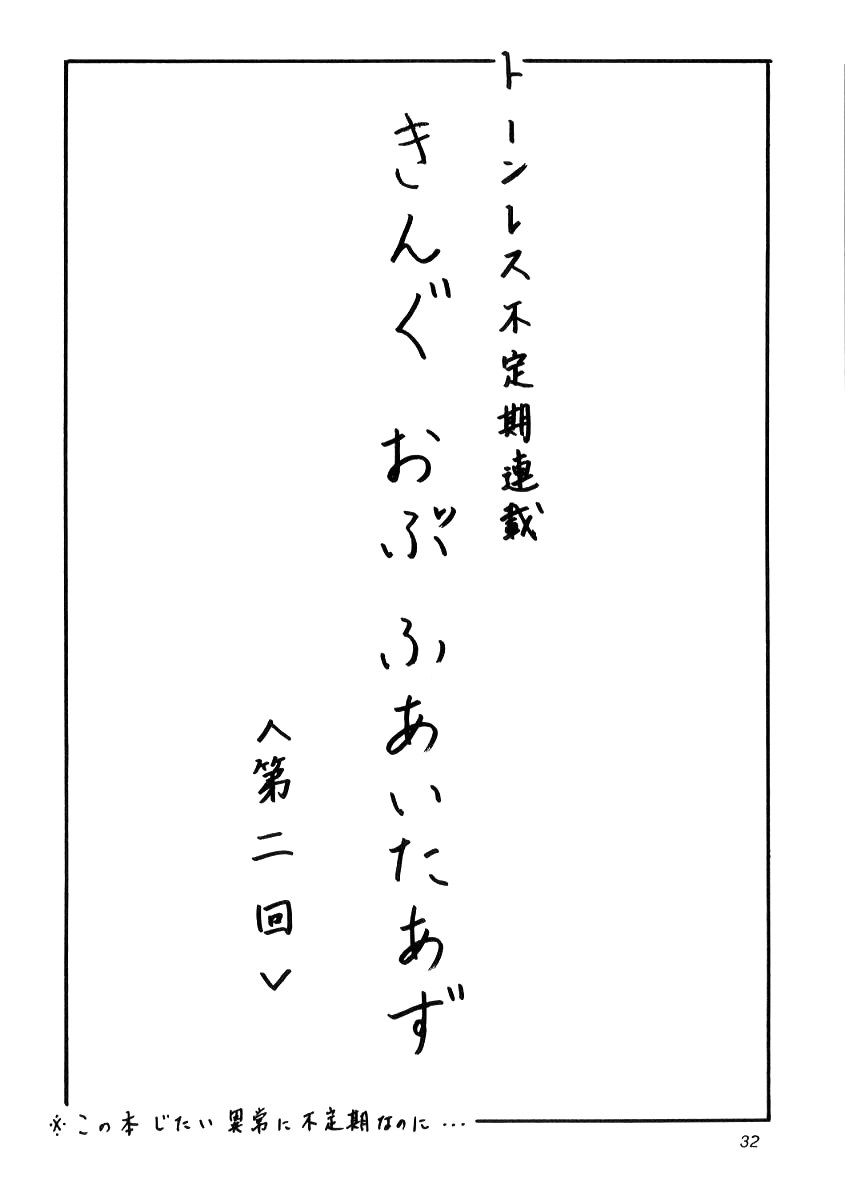 トーンレス不定期連載
きんぐ おぶ ふあいたあず
<第二回>
※この本じたい異常に不定期なのに…
32